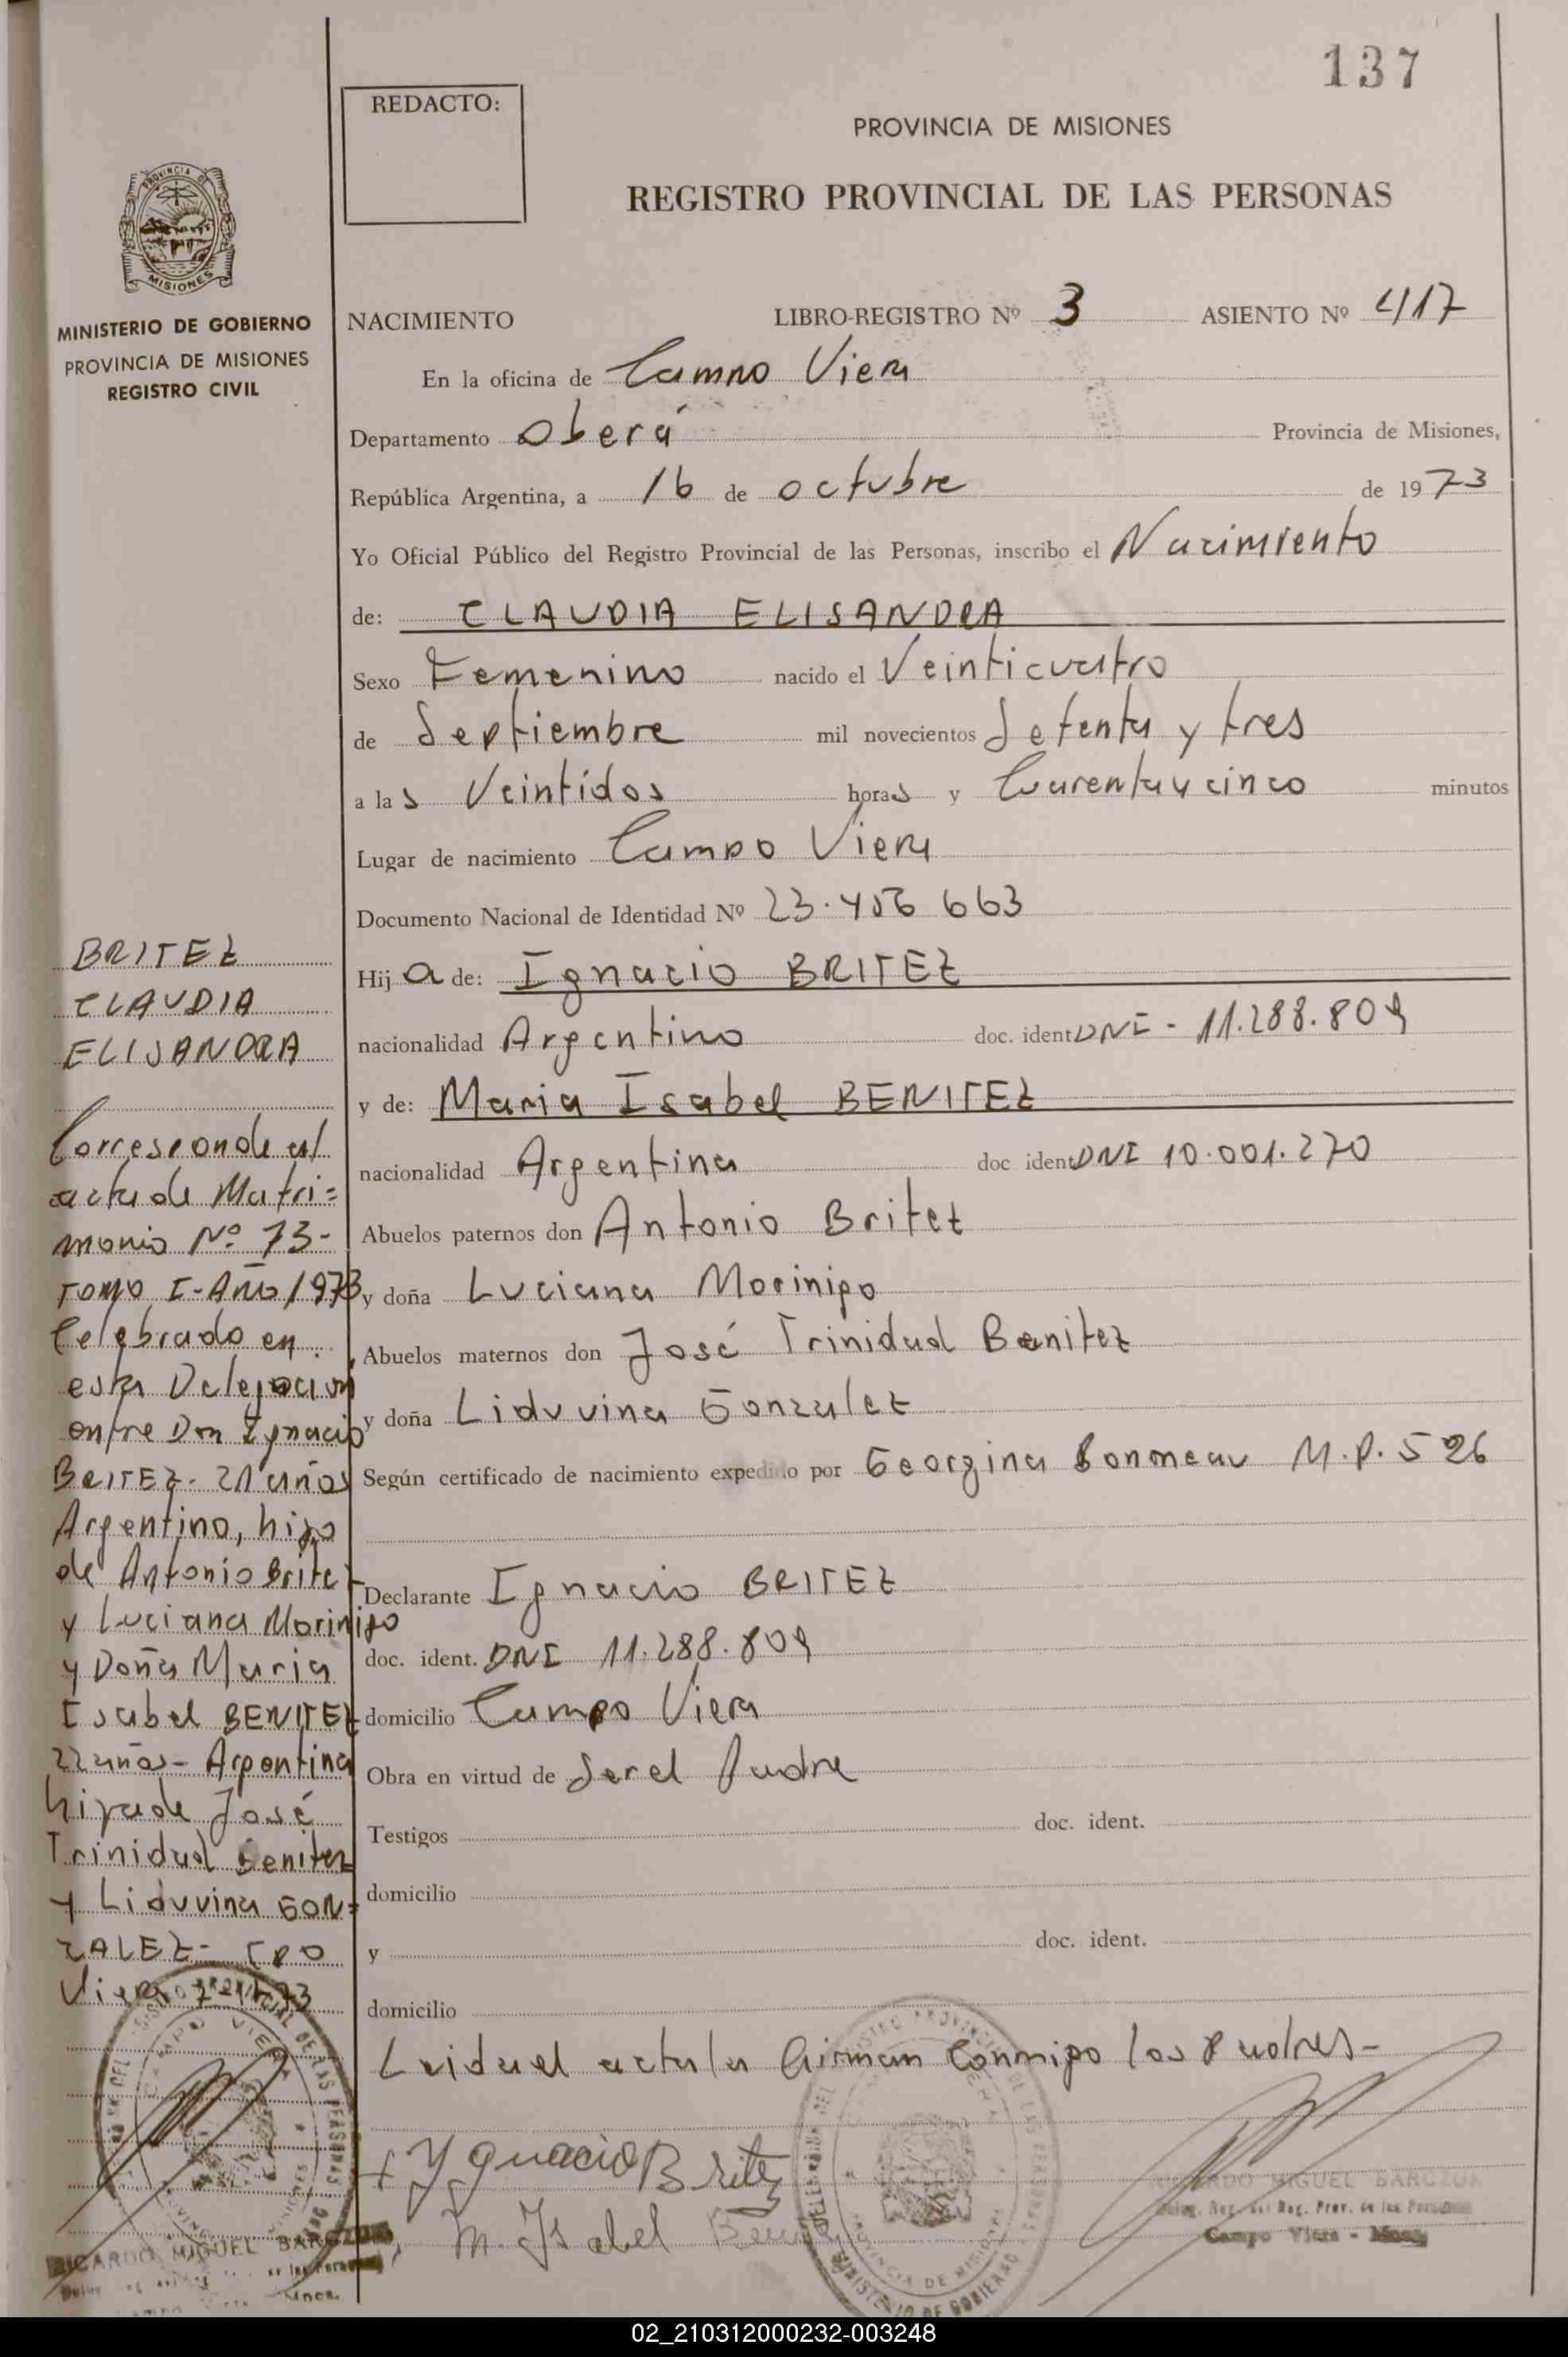 137
REDACTO:
PROVINCIA DE MISIONES
REGISTRO PROVINCIAL DE LAS PERSONAS
PROVINCIA DE
MISIONES
MINISTERIO DE GOBIERNO
PROVINCIA DE MISIONES
REGISTRO CIVIL
NACIMIENTO LIBRO-REGISTRO Nº 3 ASIENTO Nº 417
En la oficina de Campo Viera
Departamento Oberá Provincia de Misiones,
República Argentina, a 16 de octubre de 1973
Yo Oficial Público del Registro Provincial de las Personas, inscribo el Nacimiento
de: CLAUDIA ELISANDRA
Sexo Femenino nacido el Veinticuatro
de Septiembre mil novecientos Setenta y tres
a las Veintidos horas y Cuarenta y cinco minutos
Lugar de nacimiento Campo Viera
Documento Nacional de Identidad Nº 23.456 663
Hija de: Ignacio BRITEZ
nacionalidad Argentino doc. ident. DNI - 11.288.809
y de: Maria Isabel BENITEZ
nacionalidad Argentina doc ident DNI 10.001.270
Abuelos paternos don Antonio Britez
y doña Luciana Morinigo
Abuelos maternos don José Trinidad Benitez
y doña Liduvina Gonzalez
Según certificado de nacimiento expedido por Georgina Bonneau M.P. 526
Declarante Ignacio BRITEZ
doc. ident. DNI 11.288.809
domicilio Campo Viera
Obra en virtud de Ser el Padre
Testigos doc. ident.
domicilio
y doc. ident.
domicilio
Leida el acta la firman Conmigo los Padres-
Ygnacio Britez
M. Isabel
RICARDO MIGUEL BARCZUK
Campo Viera - Mnes.
BRITEZ
CLAUDIA
ELISANDRA
Corresponde al
acta de Matri=
monio Nº 73-
Tomo I-Año 1973
Celebrado en
esta Delegacion
entre Don Ignacio
BRITEZ- 21 años
Argentino, hijo
de Antonio Britez
y Luciana Morinigo
y Doña Maria
Isabel BENITEZ
22 años- Argentina
hija de José
Trinidad Benitez
y Liduvina GON=
ZALEZ- CPO
Viera
RICARDO MIGUEL BARCZUK
Mnes.
02_210312000232-003248